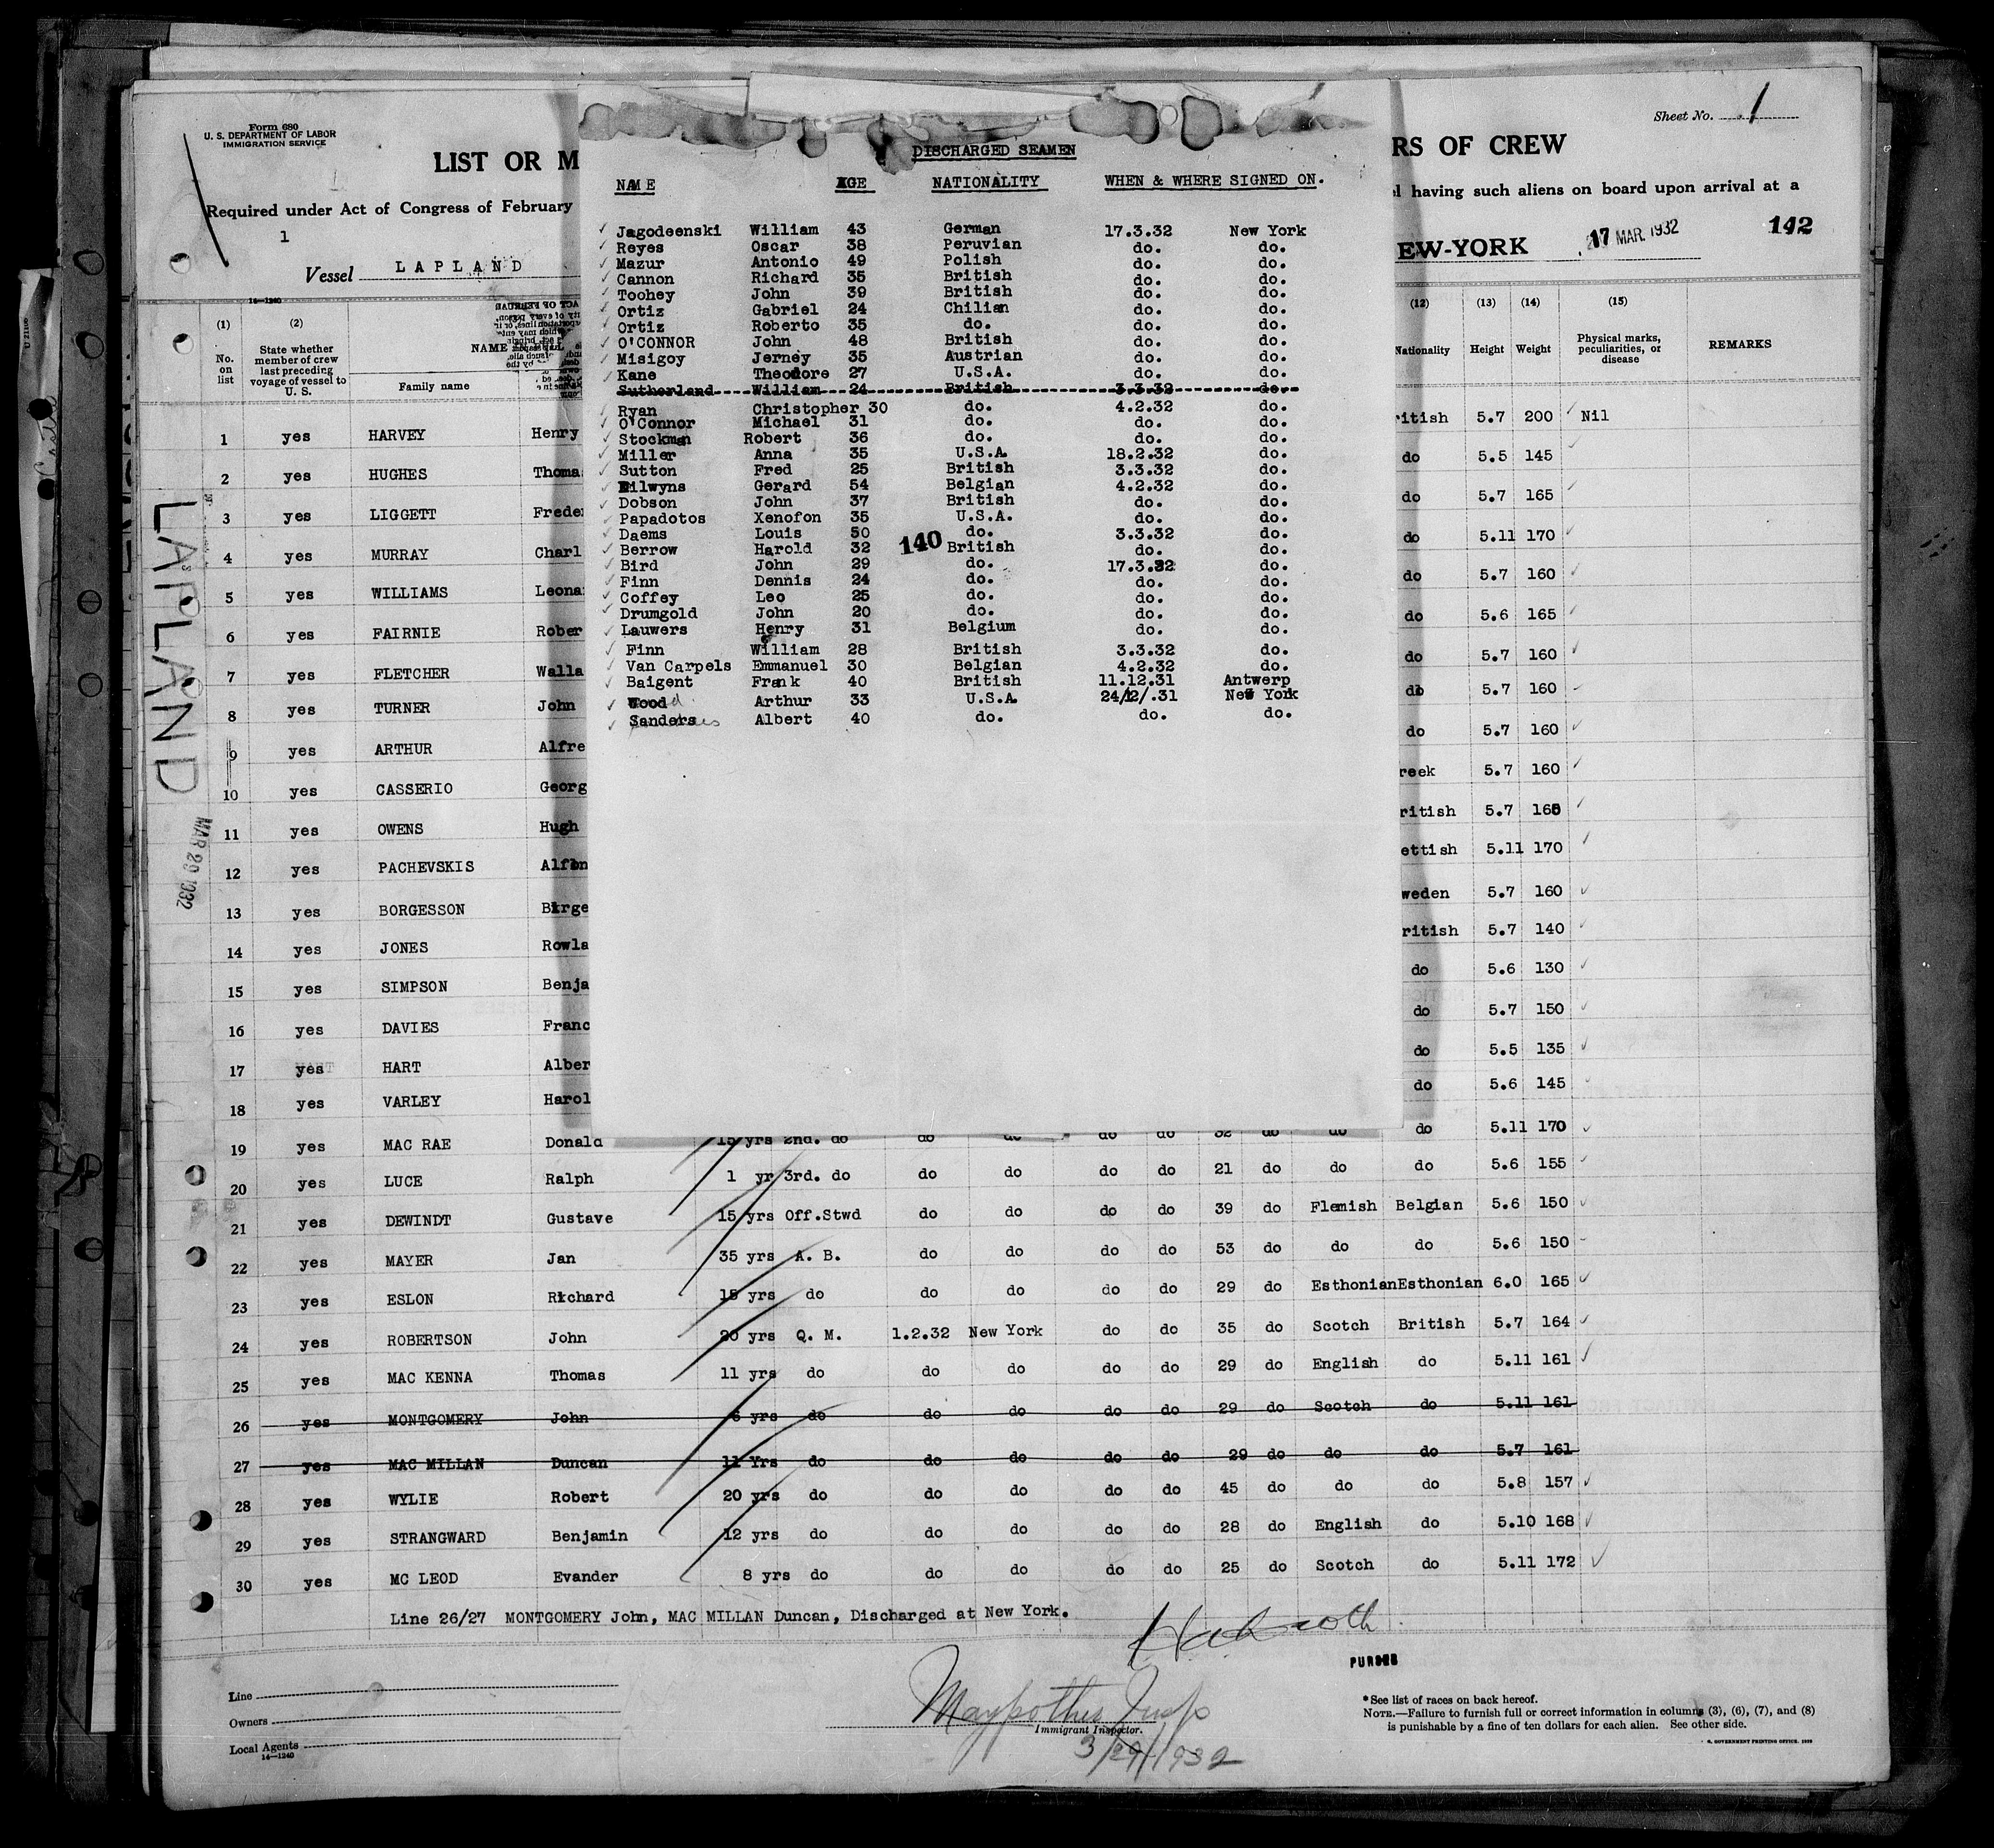 Form 680
U. S. DEPARTMENT OF LABOR
IMMIGRATION SERVICE
Sheet No. 1
LIST OR M
RS OF CREW
Required under Act of Congress of February
l having such aliens on board upon arrival at a
1
Vessel LAPLAND
EW-YORK
17 MAR. 1932
142
DISCHARGED SEAMEN
NAME AGE NATIONALITY WHEN & WHERE SIGNED ON.
Jagodeenski William 43 German 17.3.32 New York
Reyes Oscar 38 Peruvian do. do.
Mazur Antonio 49 Polish do. do.
Cannon Richard 35 British do. do.
Toohey John 39 British do. do.
Ortiz Gabriel 24 Chilian do. do.
Ortiz Roberto 35 do. do. do.
O'CONNOR John 48 British do. do.
Misigoy Jerney 35 Austrian do. do.
Kane Theodore 27 U.S.A. do. do.
Sutherland William 24 British 3.3.32 do.
Ryan Christopher 30 do. 4.2.32 do.
O'Connor Michael 31 do. do. do.
Stockman Robert 36 do. do. do.
Miller Anna 35 U.S.A. 18.2.32 do.
Sutton Fred 25 British 3.3.32 do.
Eilwyns Gerard 54 Belgian 4.2.32 do.
Dobson John 37 British do. do.
Papadotos Xenofon 35 U.S.A. do. do.
Daems Louis 50 do. 3.3.32 do.
Berrow Harold 32 British do. do.
140
Bird John 29 do. 17.3.32 do.
Finn Dennis 24 do. do. do.
Coffey Leo 25 do. do. do.
Drumgold John 20 do. do. do.
Lauwers Henry 31 Belgium do. do.
Finn William 28 British 3.3.32 do.
Van Carpels Emmanuel 30 Belgian 4.2.32 do.
Baigent Frank 40 British 11.12.31 Antwerp
Wood Arthur 33 U.S.A. 24/12/.31 New York
Sanders Albert 40 do. do. do.
14—1240
(1) (2) (12) (13) (14) (15)
No. on list
State whether member of crew last preceding voyage of vessel to U. S.
NAME IN
Family name
Nationality Height Weight Physical marks, peculiarities, or disease REMARKS
1 yes HARVEY Henry ritish 5.7 200 Nil
2 yes HUGHES Thoma do 5.5 145
3 yes LIGGETT Freder do 5.7 165
4 yes MURRAY Charl do 5.11 170
5 yes WILLIAMS Leona do 5.7 160
6 yes FAIRNIE Rober do 5.6 165
7 yes FLETCHER Walla do 5.7 160
8 yes TURNER John do 5.7 160
9 yes ARTHUR Alfre do 5.7 160
10 yes CASSERIO Georg reek 5.7 160
11 yes OWENS Hugh ritish 5.7 165
12 yes PACHEVSKIS Alfon ettish 5.11 170
13 yes BORGESSON Birge weden 5.7 160
14 yes JONES Rowla ritish 5.7 140
15 yes SIMPSON Benja do 5.6 130
16 yes DAVIES Franc do 5.7 150
17 yes HART Alber do 5.5 135
18 yes VARLEY Harol do 5.6 145
19 yes MAC RAE Donald 15 yrs 2nd. do do do do do 32 do do do 5.11 170
20 yes LUCE Ralph 1 yr 3rd. do do do do do 21 do do do 5.6 155
21 yes DEWINDT Gustave 15 yrs Off.Stwd do do do do 39 do Flemish Belgian 5.6 150
22 yes MAYER Jan 35 yrs A. B. do do do do 53 do do do 5.6 150
23 yes ESLON Richard 15 yrs do do do do do 29 do Esthonian Esthonian 6.0 165
24 yes ROBERTSON John 20 yrs Q. M. 1.2.32 New York do do 35 do Scotch British 5.7 164
25 yes MAC KENNA Thomas 11 yrs do do do do do 29 do English do 5.11 161
26 yes MONTGOMERY John 6 yrs do do do do do 29 do Scotch do 5.11 161
27 yes MAC MILLAN Duncan 11 Yrs do do do do do 29 do do do 5.7 161
28 yes WYLIE Robert 20 yrs do do do do do 45 do do do 5.8 157
29 yes STRANGWARD Benjamin 12 yrs do do do do do 28 do English do 5.10 168
30 yes MC LEOD Evander 8 yrs do do do do do 25 do Scotch do 5.11 172
Line 26/27 MONTGOMERY John, MAC MILLAN Duncan, Discharged at New York.
PURSER
Line
Owners
Local Agents
14—1240
Immigrant Inspector.
3/29/1932
*See list of races on back hereof.
NOTE.—Failure to furnish full or correct information in columns (3), (6), (7), and (8)
is punishable by a fine of ten dollars for each alien. See other side.
GOVERNMENT PRINTING OFFICE
LAPLAND
MAR 29 1932